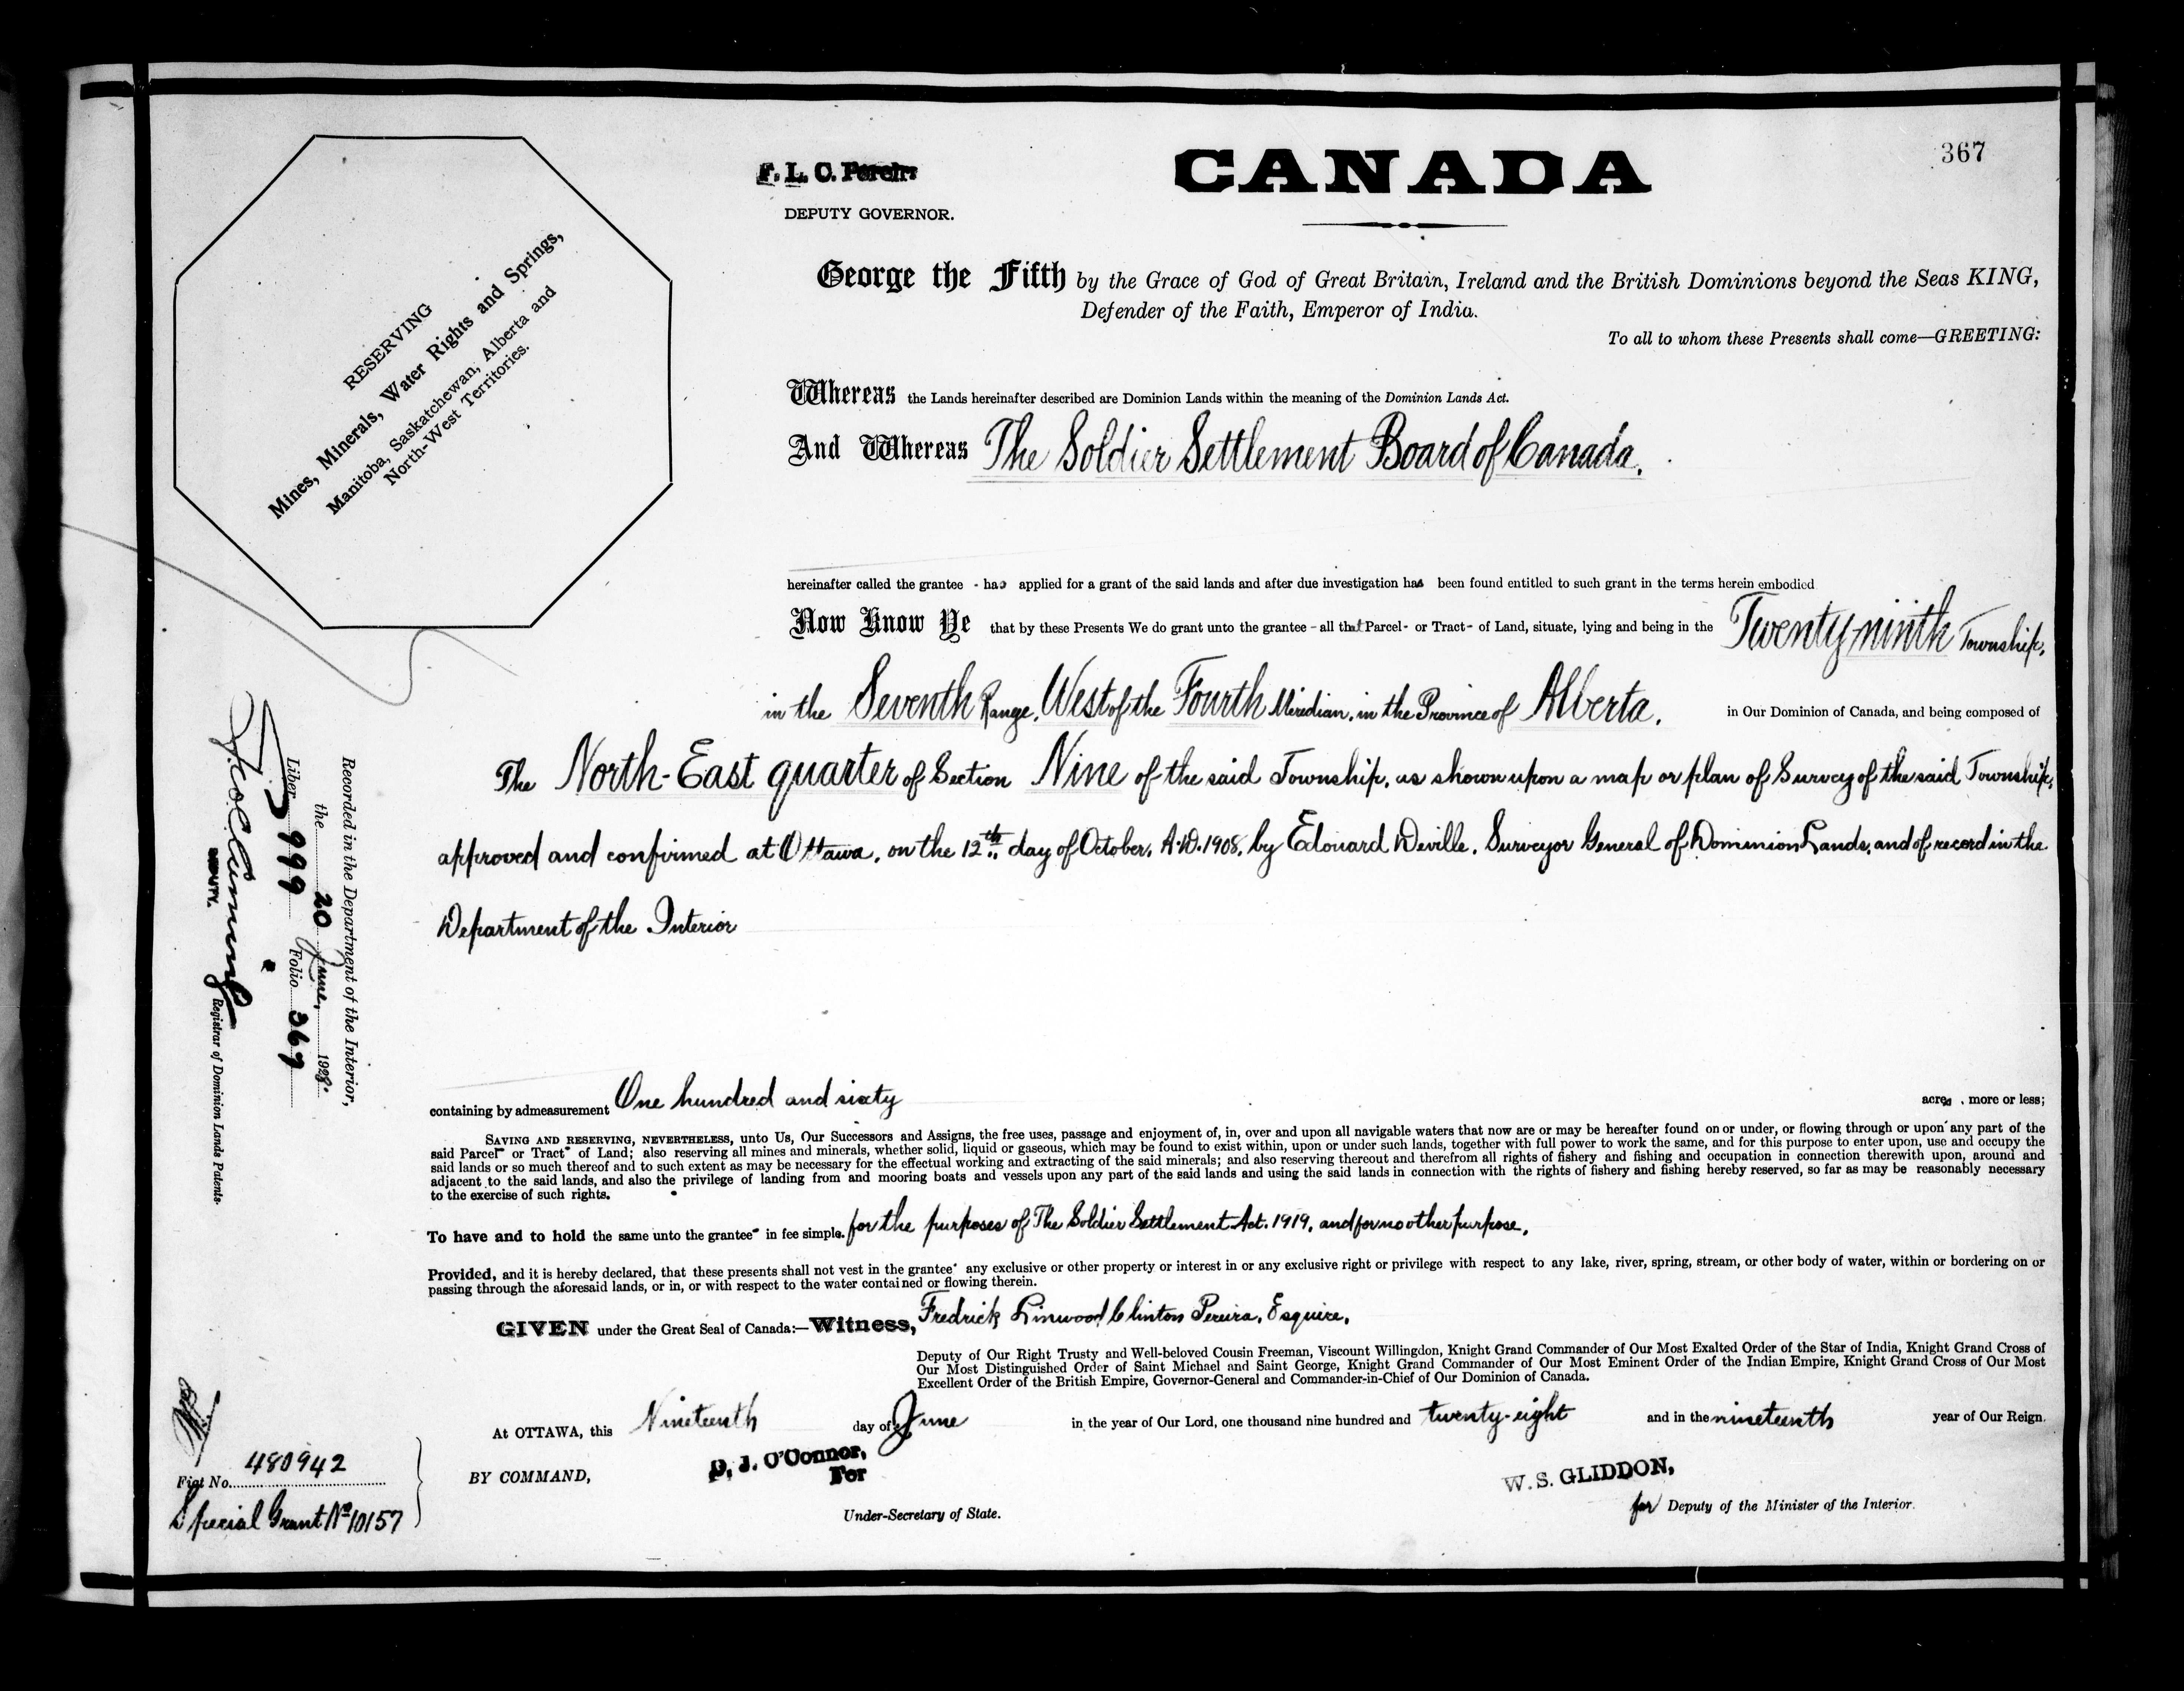 367
CANADA
F. L. C. Pereira
DEPUTY GOVERNOR.
RESERVING
Mines, Minerals, Water Rights and Springs,
Manitoba, Saskatchewan, Alberta and
North-West Territories.
George the Fifth by the Grace of God of Great Britain, Ireland and the British Dominions beyond the Seas KING,
Defender of the Faith, Emperor of India.
To all to whom these Presents shall come—GREETING:
Whereas the Lands hereinafter described are Dominion Lands within the meaning of the Dominion Lands Act.
And Whereas The Soldier Settlement Board of Canada.
hereinafter called the grantee - has applied for a grant of the said lands and after due investigation has been found entitled to such grant in the terms herein embodied
Now Know Ye that by these Presents We do grant unto the grantee - all that Parcel - or Tract - of Land, situate, lying and being in the Twenty-ninth Township,
in the Seventh Range, West of the Fourth Meridian, in the Province of Alberta. in Our Dominion of Canada, and being composed of
The North-East quarter of Section Nine of the said Township, as shown upon a map or plan of Survey of the said Township,
approved and confirmed at Ottawa, on the 12th day of October, A.D. 1908, by Edouard Deville, Surveyor General of Dominion Lands, and of record in the
Department of the Interior
containing by admeasurement One hundred and sixty acres, more or less;
SAVING AND RESERVING, NEVERTHELESS, unto Us, Our Successors and Assigns, the free uses, passage and enjoyment of, in, over and upon all navigable waters that now are or may be hereafter found on or under, or flowing through or upon any part of the
said Parcel or Tract of Land; also reserving all mines and minerals, whether solid, liquid or gaseous, which may be found to exist within, upon or under such lands, together with full power to work the same, and for this purpose to enter upon, use and occupy the
said lands or so much thereof and to such extent as may be necessary for the effectual working and extracting of the said minerals; and also reserving thereout and therefrom all rights of fishery and fishing and occupation in connection therewith upon, around and
adjacent to the said lands, and also the privilege of landing from and mooring boats and vessels upon any part of the said lands and using the said lands in connection with the rights of fishery and fishing hereby reserved, so far as may be reasonably necessary
to the exercise of such rights.
To have and to hold the same unto the grantee in fee simple. for the purposes of The Soldier Settlement Act. 1919, and for no other purpose.
Provided, and it is hereby declared, that these presents shall not vest in the grantee any exclusive or other property or interest in or any exclusive right or privilege with respect to any lake, river, spring, stream, or other body of water, within or bordering on or
passing through the aforesaid lands, or in, or with respect to the water contained or flowing therein.
GIVEN under the Great Seal of Canada:—Witness, Fredrick Linwood Clinton Pereira, Esquire,
Deputy of Our Right Trusty and Well-beloved Cousin Freeman, Viscount Willingdon, Knight Grand Commander of Our Most Exalted Order of the Star of India, Knight Grand Cross of
Our Most Distinguished Order of Saint Michael and Saint George, Knight Grand Commander of Our Most Eminent Order of the Indian Empire, Knight Grand Cross of Our Most
Excellent Order of the British Empire, Governor-General and Commander-in-Chief of Our Dominion of Canada.
At OTTAWA, this Nineteenth day of June in the year of Our Lord, one thousand nine hundred and twenty-eight and in the nineteenth year of Our Reign.
BY COMMAND,
D. J. O'Connor,
For
Under-Secretary of State.
W. S. GLIDDON,
for Deputy of the Minister of the Interior.
Recorded in the Department of the Interior,
the 20 June, 1928.
Liber 999 Folio 367
DEPUTY. Registrar of Dominion Lands Patents.
Fiat No. 480942
Special Grant No 10157